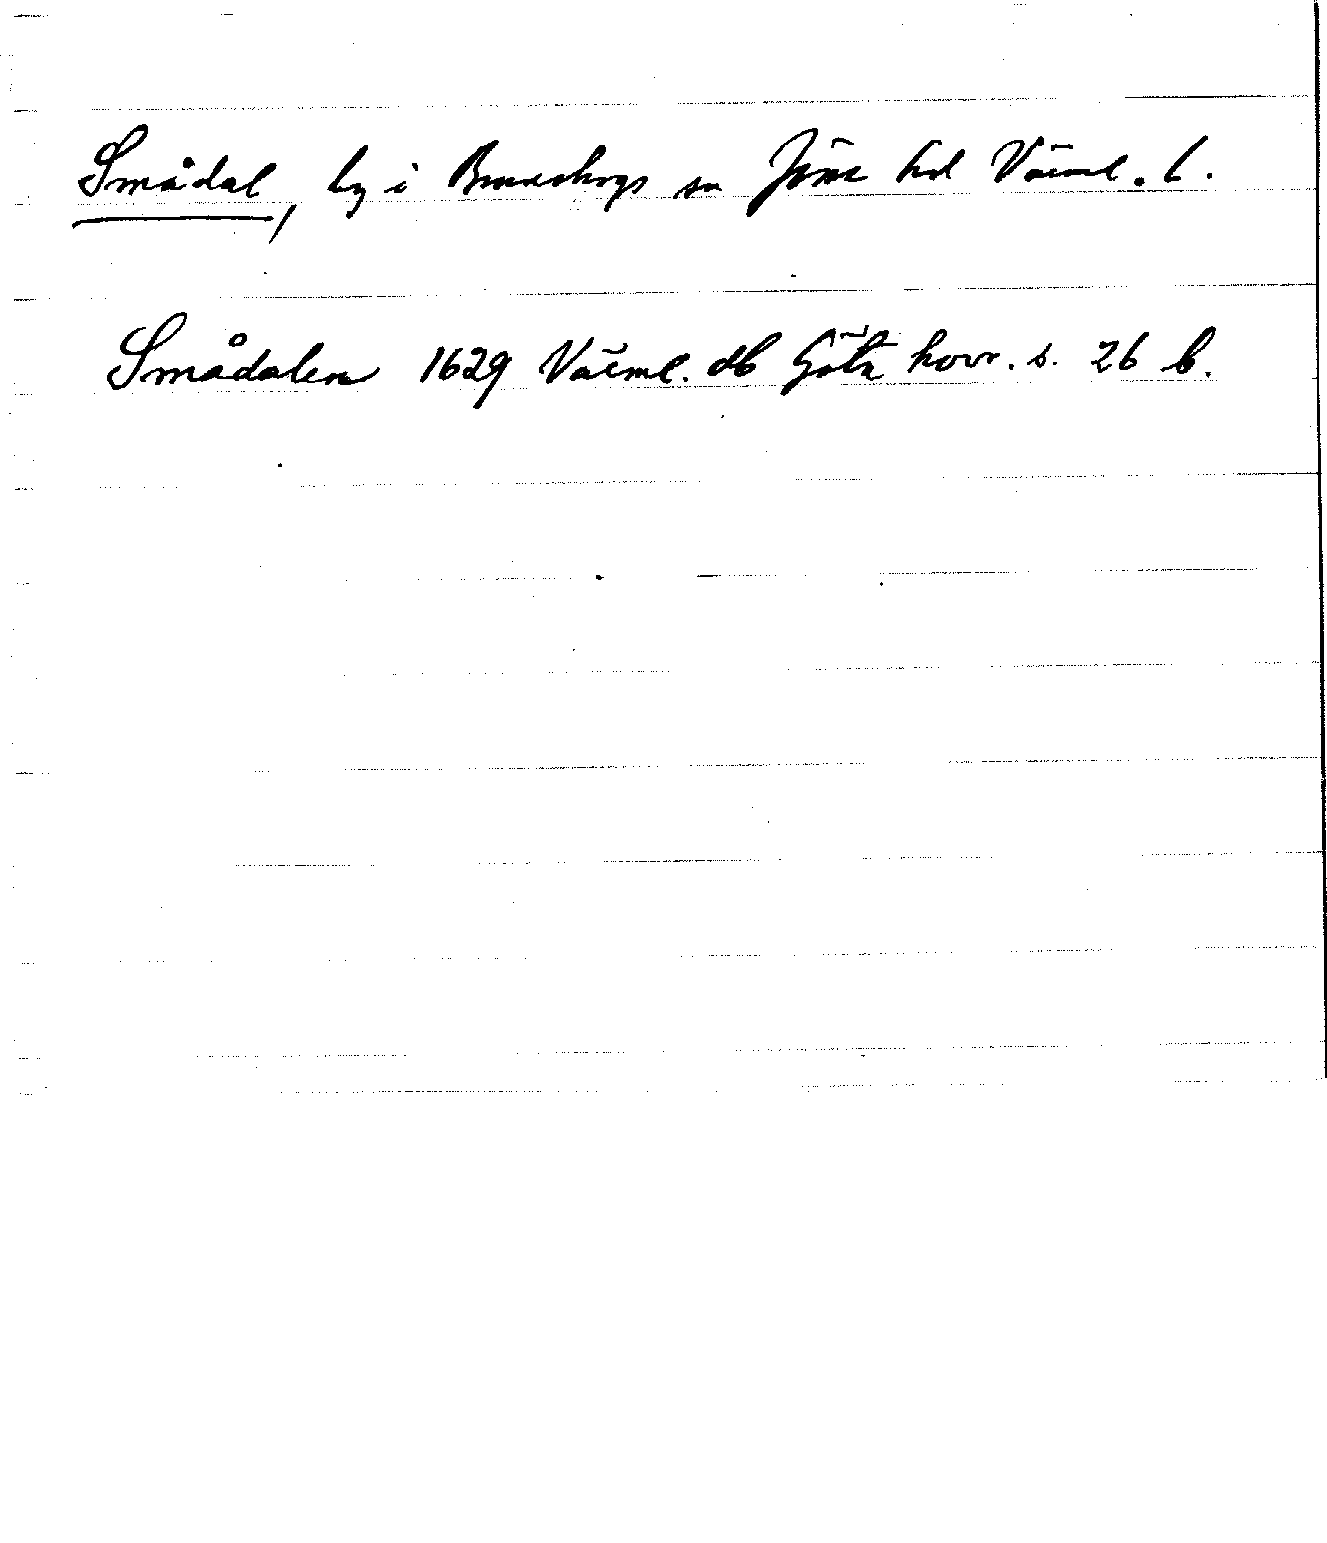 Smådal, by i Brunskogs sn Jösse hd Värml. l.
Smådalen 1629 Värml. db Göta hovr. s. 26 b.